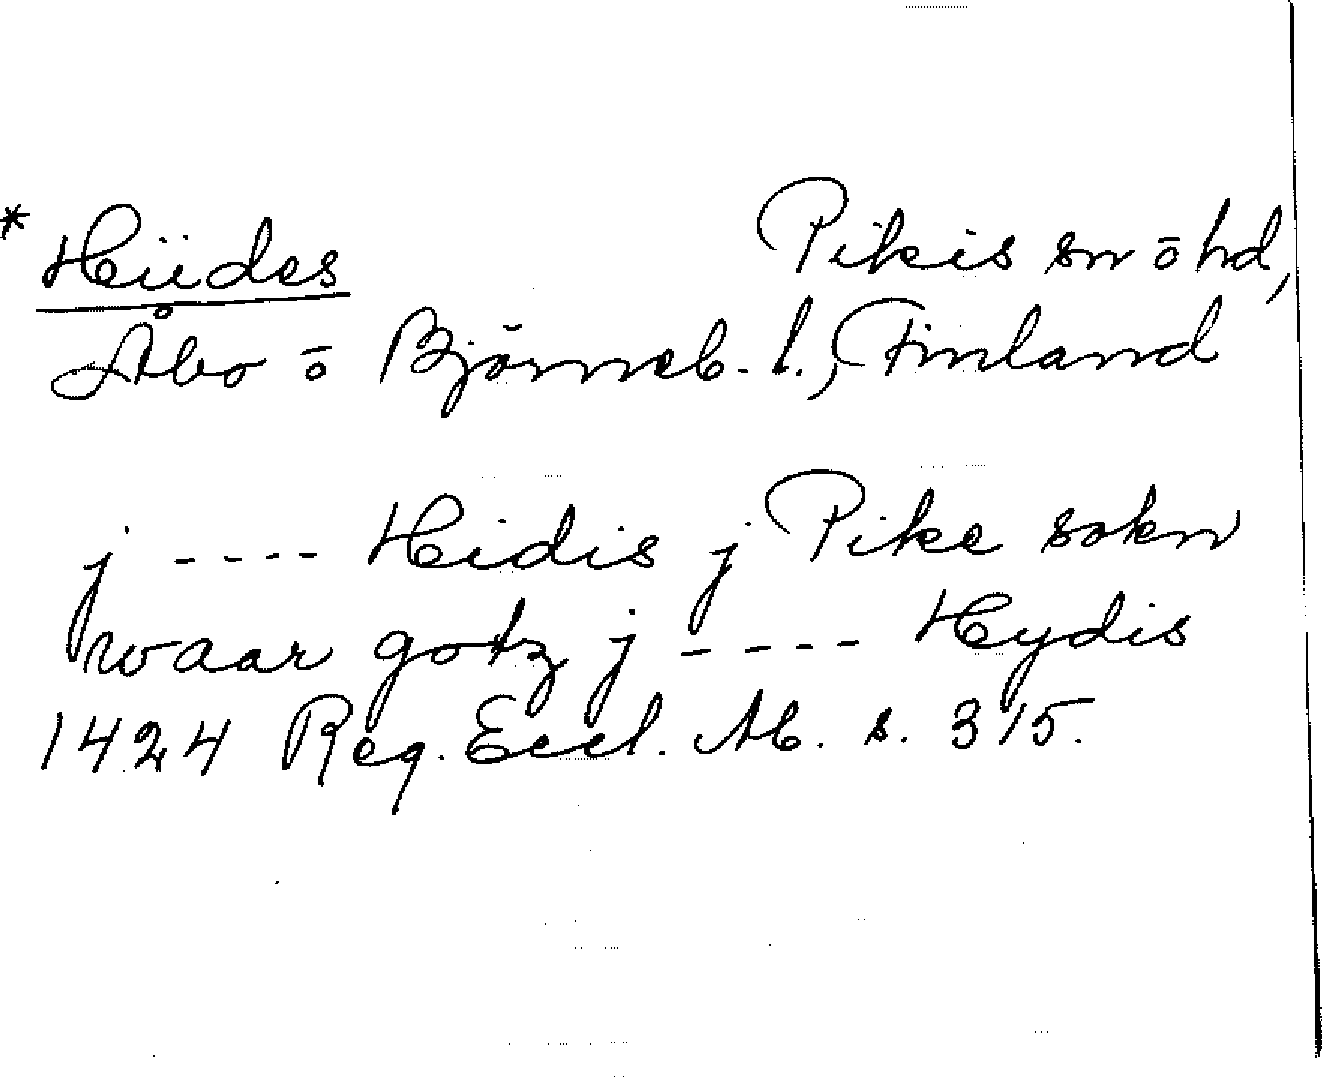 * Hiides Pikis sn o hd,
Åbo o Björneb. l., Finland
j ---- Heidis j Pike sokn
waar gotz j ---- Heydis
1424 Reg. Eccl. Ab. s. 315.